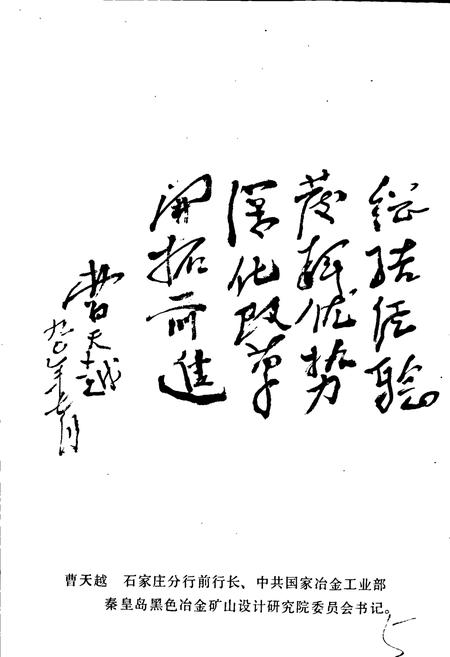 总结经验
发挥优势
深化改革
开拓前进
曹天越
九〇年七月
曹天越 石家庄分行前行长、中共国家冶金工业部
秦皇岛黑色冶金矿山设计研究院委员会书记。
5